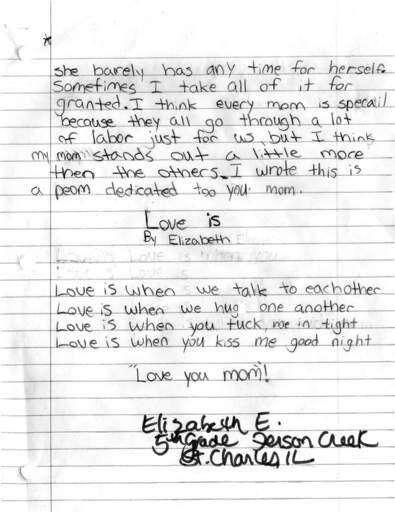 *
she barely has any time for herself.
Sometimes I take all of it for
granted. I think every mom is specail
because they all go through a lot
of labor just for us, but I think
my mom stands out a little more
then the others. I wrote this is
a peom dedicated too you mom.
Love is
By Elizabeth E
Love is when we talk to eachother
Love is when we hug one another
Love is when you tuck me in tight
Love is when you kiss me good night
"Love you mom"!
Elizabeth E.
5th Grade Ferson Creek
St. Charles IL